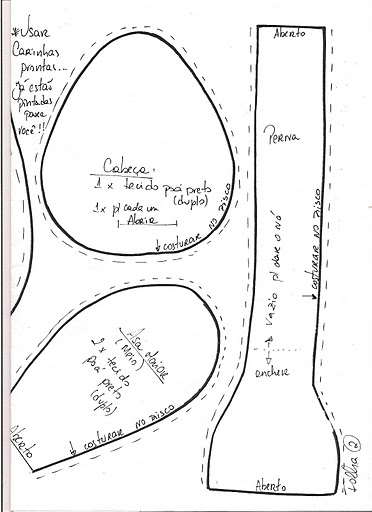 * Usar
Carinhas
prontas...
Já estão
pintadas
para
você!!
Cabeça:
1 x tecido poá preto
(duplo)
1x p/ cada um
Aberio
↓ costurar no risco
Asa
(Meio)
2 x tecido
poá preto
(duplo)
Aberto
↓ costurar no risco
Aberto
Perna
↓ costurar no risco
vazio p/ dar o nó
encher
Aberto
Folha 2